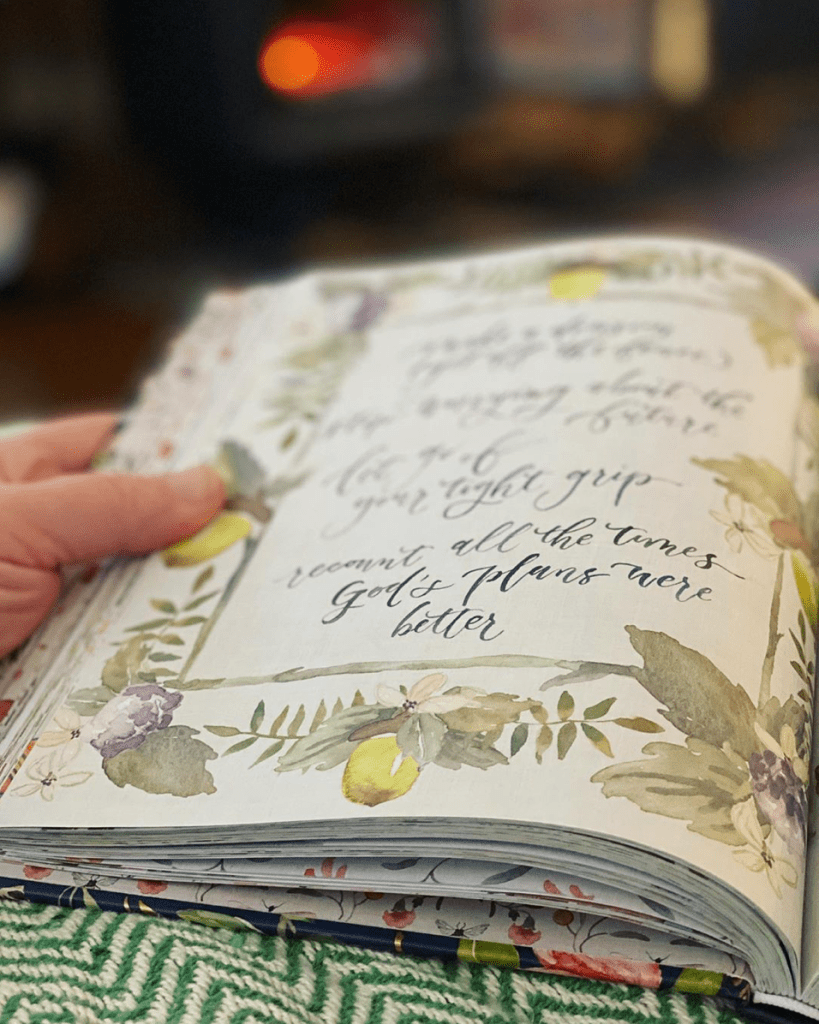 stop worrying about the
future
let go of
your tight grip
recount all the times
God's plans were
better